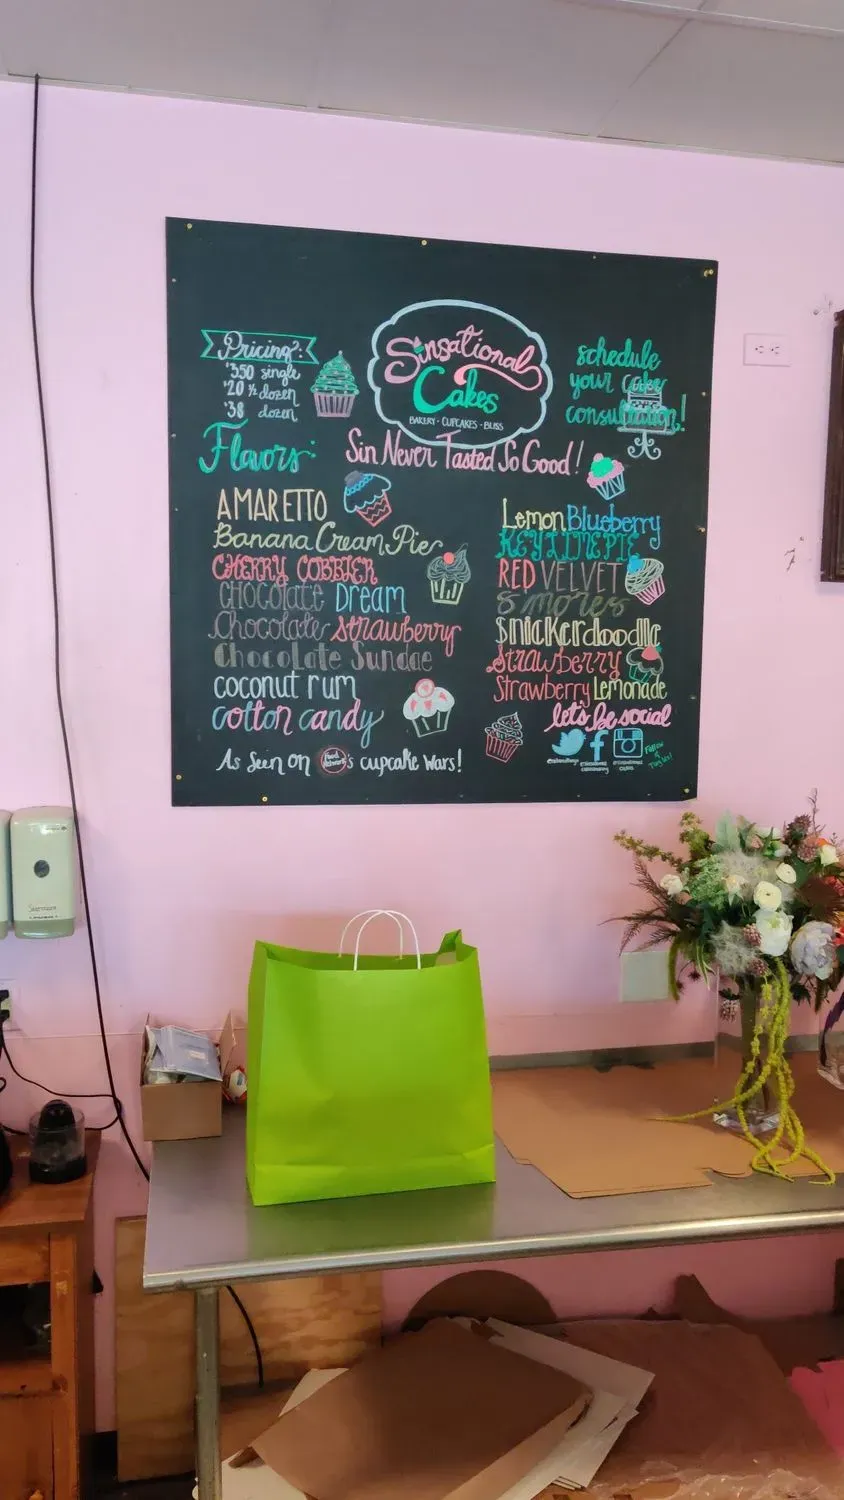 Pricing:
$3.50 single
$20 ½ dozen
$38 dozen
Sinsational
Cakes
BAKERY · CUPCAKES · BLISS
schedule
your cake
consultation!
Sin Never Tasted So Good!
Flavors:
AMARETTO
Banana Cream Pie
CHERRY COBBLER
CHOCOLATE DREAM
Chocolate Strawberry
Chocolate Sundae
coconut rum
cotton candy
Lemon Blueberry
KEY LIME PIE
RED VELVET
s'mores
Snickerdoodle
Strawberry
Strawberry Lemonade
let's be social
As Seen on Food Network's cupcake wars!